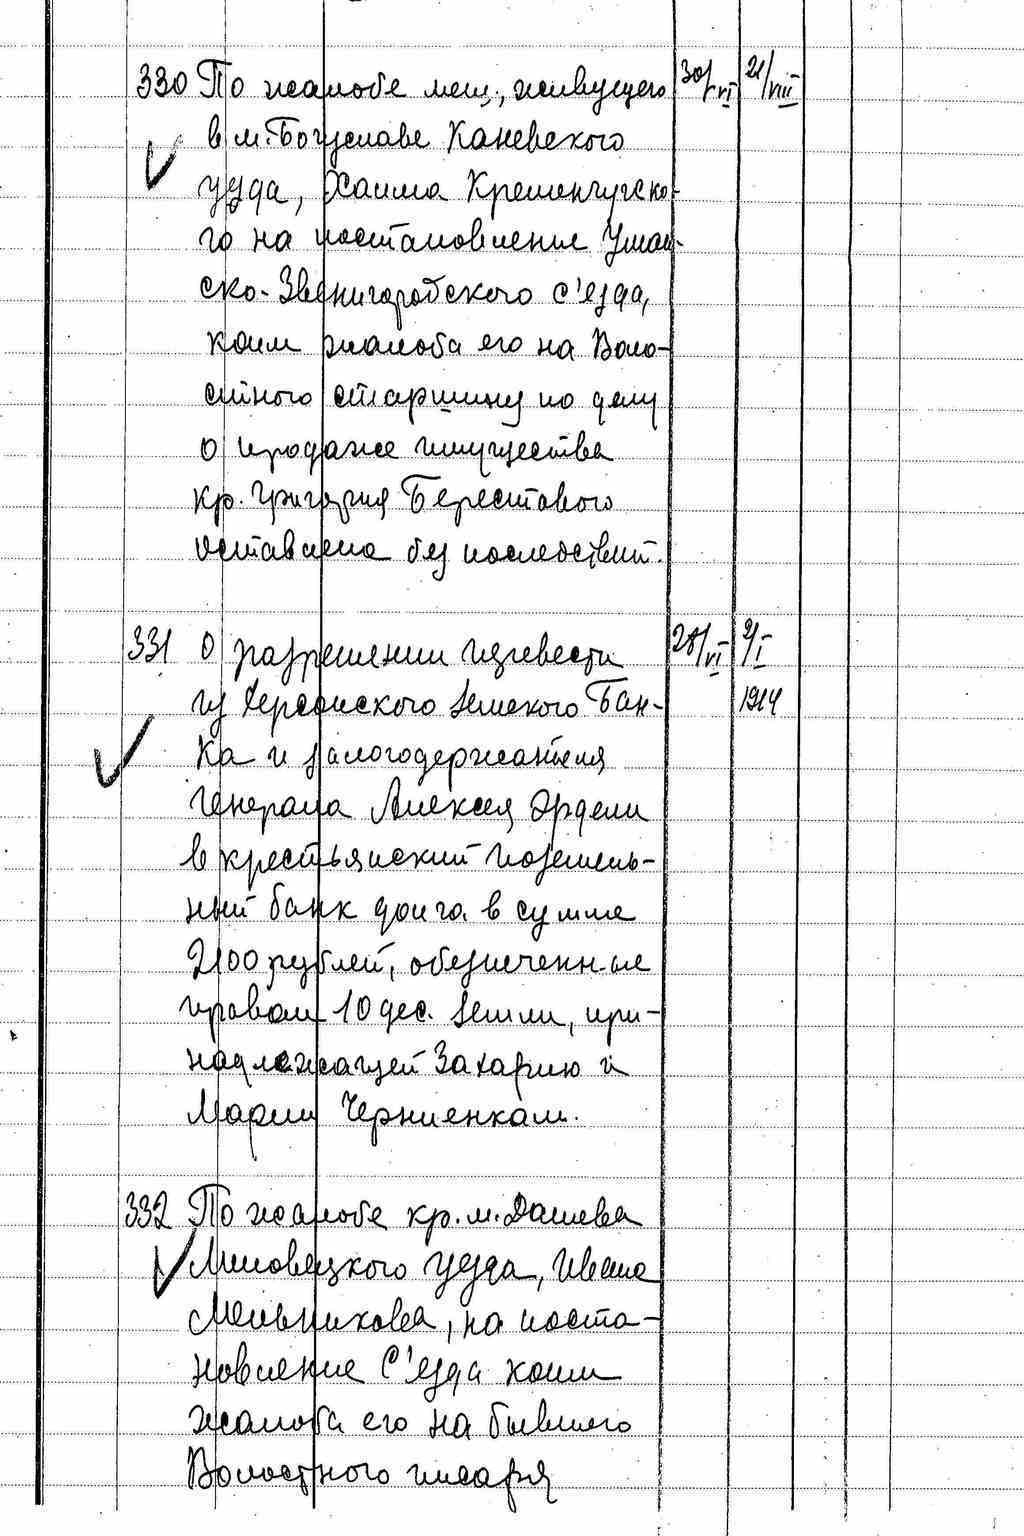 330 По жалобе мещ., живущего 30/VI 21/VIII
в м. Богуславе Каневского
уезда, Хаима Кременчугско-
го на постановление Уман-
ско-Звенигородского с'езда,
коим жалоба его на Воло-
стного старшину по делу
о продаже имущества
кр. Григория Берестового
оставлена без последствий.
331 О разрешении перевести 28/VI 9/I
из Херсонского Земского Бан- 1914
ка и залогодержателя
генерала Алексея Эрдели
в крестьянский поземель-
ный банк долга в сумме
2100 рублей, обезпеченные
правом 10 дес. земли, при-
надлежащей Захарию и
Марии Черниенкам.
332 По жалобе кр. м. Дашева
Липовецкого уезда, Ивана
Мельникова, на поста-
новление С'езда коим
жалоба его на бывшего
Волостного писаря